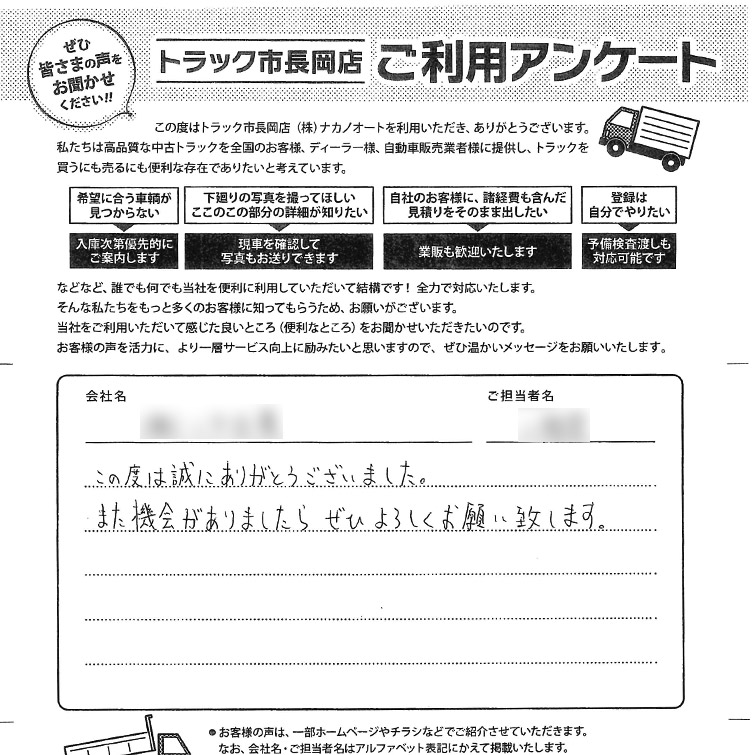 ぜひ
皆さまの声を
お聞かせ
ください!!
トラック市長岡店 ご利用アンケート
この度はトラック市長岡店(株)ナカノオートを利用いただき、ありがとうございます。
私たちは高品質な中古トラックを全国のお客様、ディーラー様、自動車販売業者様に提供し、トラックを
買うにも売るにも便利な存在でありたいと考えています。
希望に合う車輌が
見つからない
入庫次第優先的に
ご案内します
下廻りの写真を撮ってほしい
ここのこの部分の詳細が知りたい
現車を確認して
写真もお送りできます
自社のお客様に、諸経費も含んだ
見積りをそのまま出したい
業販も歓迎いたします
登録は
自分でやりたい
予備検査渡しも
対応可能です
などなど、誰でも何でも当社を便利に利用していただいて結構です!全力で対応いたします。
そんな私たちをもっと多くのお客様に知ってもらうため、お願がございます。
当社をご利用いただいて感じた良いところ(便利なところ)をお聞かせいただきたいのです。
お客様の声を活力に、より一層サービス向上に励みたいと思いますので、ぜひ温かいメッセージをお願いいたします。
会社名 ご担当者名
この度は誠にありがとうございました。
また機会がありましたら ぜひ よろしくお願い致します。
●お客様の声は、一部ホームページやチラシなどでご紹介させていただきます。
なお、会社名・ご担当者名はアルファベット表記にかえて掲載いたします。